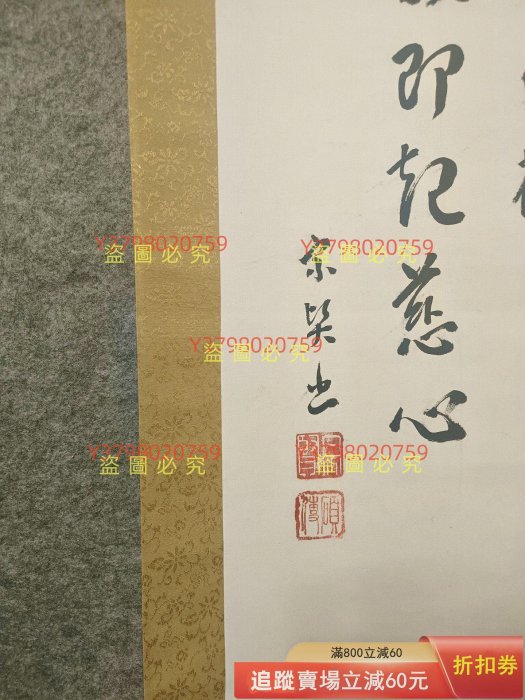 即起慈心
Y3798020759
盜圖必究
Y3798020759
盜圖必究
Y3798020759
盜圖必究
Y3798020759
盜圖必究
Y3798020759
盜圖必究
滿800立減60
追蹤賣場立減60元
折扣券